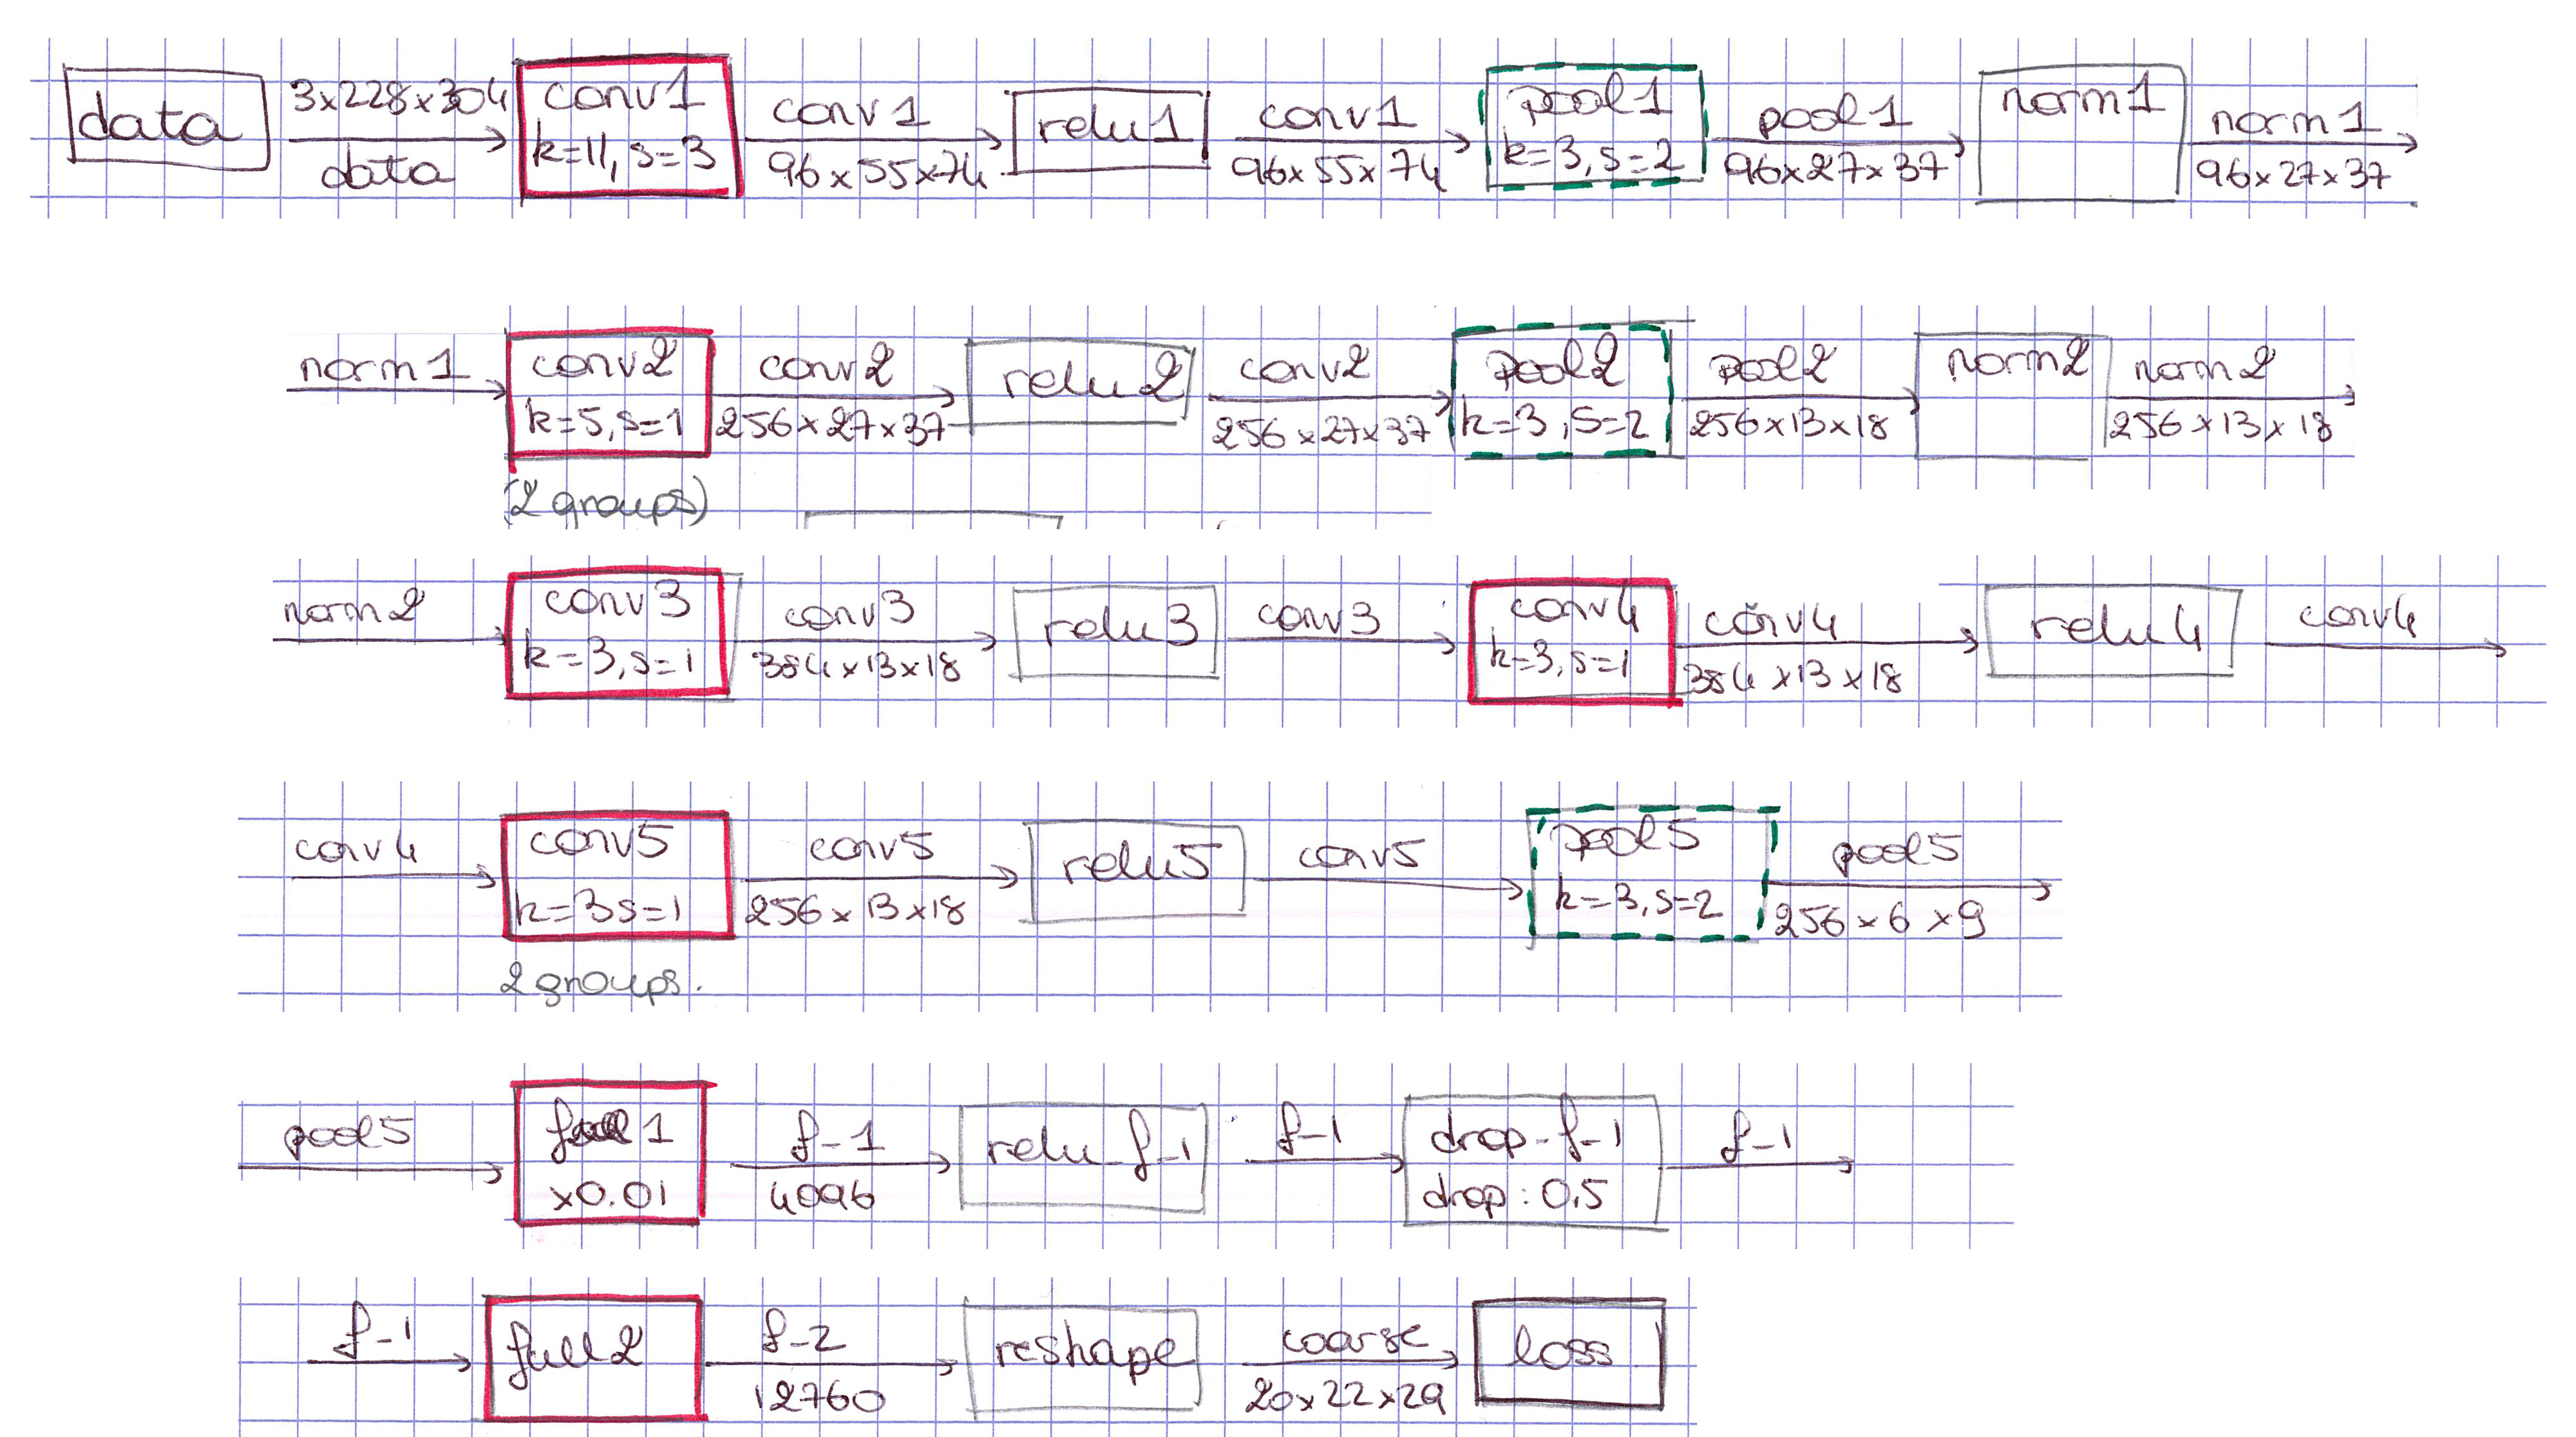 data
3x228x304
data
conv1
k=11, s=3
conv1
96x55x74
relu1
conv1
96x55x74
pool1
k=3, s=2
pool1
96x27x37
norm1
norm1
96x27x37
norm1
conv2
k=5, s=1
(2 groups)
conv2
256x27x37
relu2
conv2
256x27x37
pool2
k=3, s=2
pool2
256x13x18
norm2
norm2
256x13x18
norm2
conv3
k=3, s=1
conv3
384x13x18
relu3
conv3
conv4
k=3, s=1
conv4
384x13x18
relu4
conv4
conv4
conv5
k=3 s=1
2 groups.
conv5
256x13x18
relu5
conv5
pool5
k=3, s=2
pool5
256x6x9
pool5
full1
x0.01
f-1
4096
relu_f-1
f-1
drop-f-1
drop: 0.5
f-1
f-1
full2
f-2
12760
reshape
coarse
20x22x29
loss